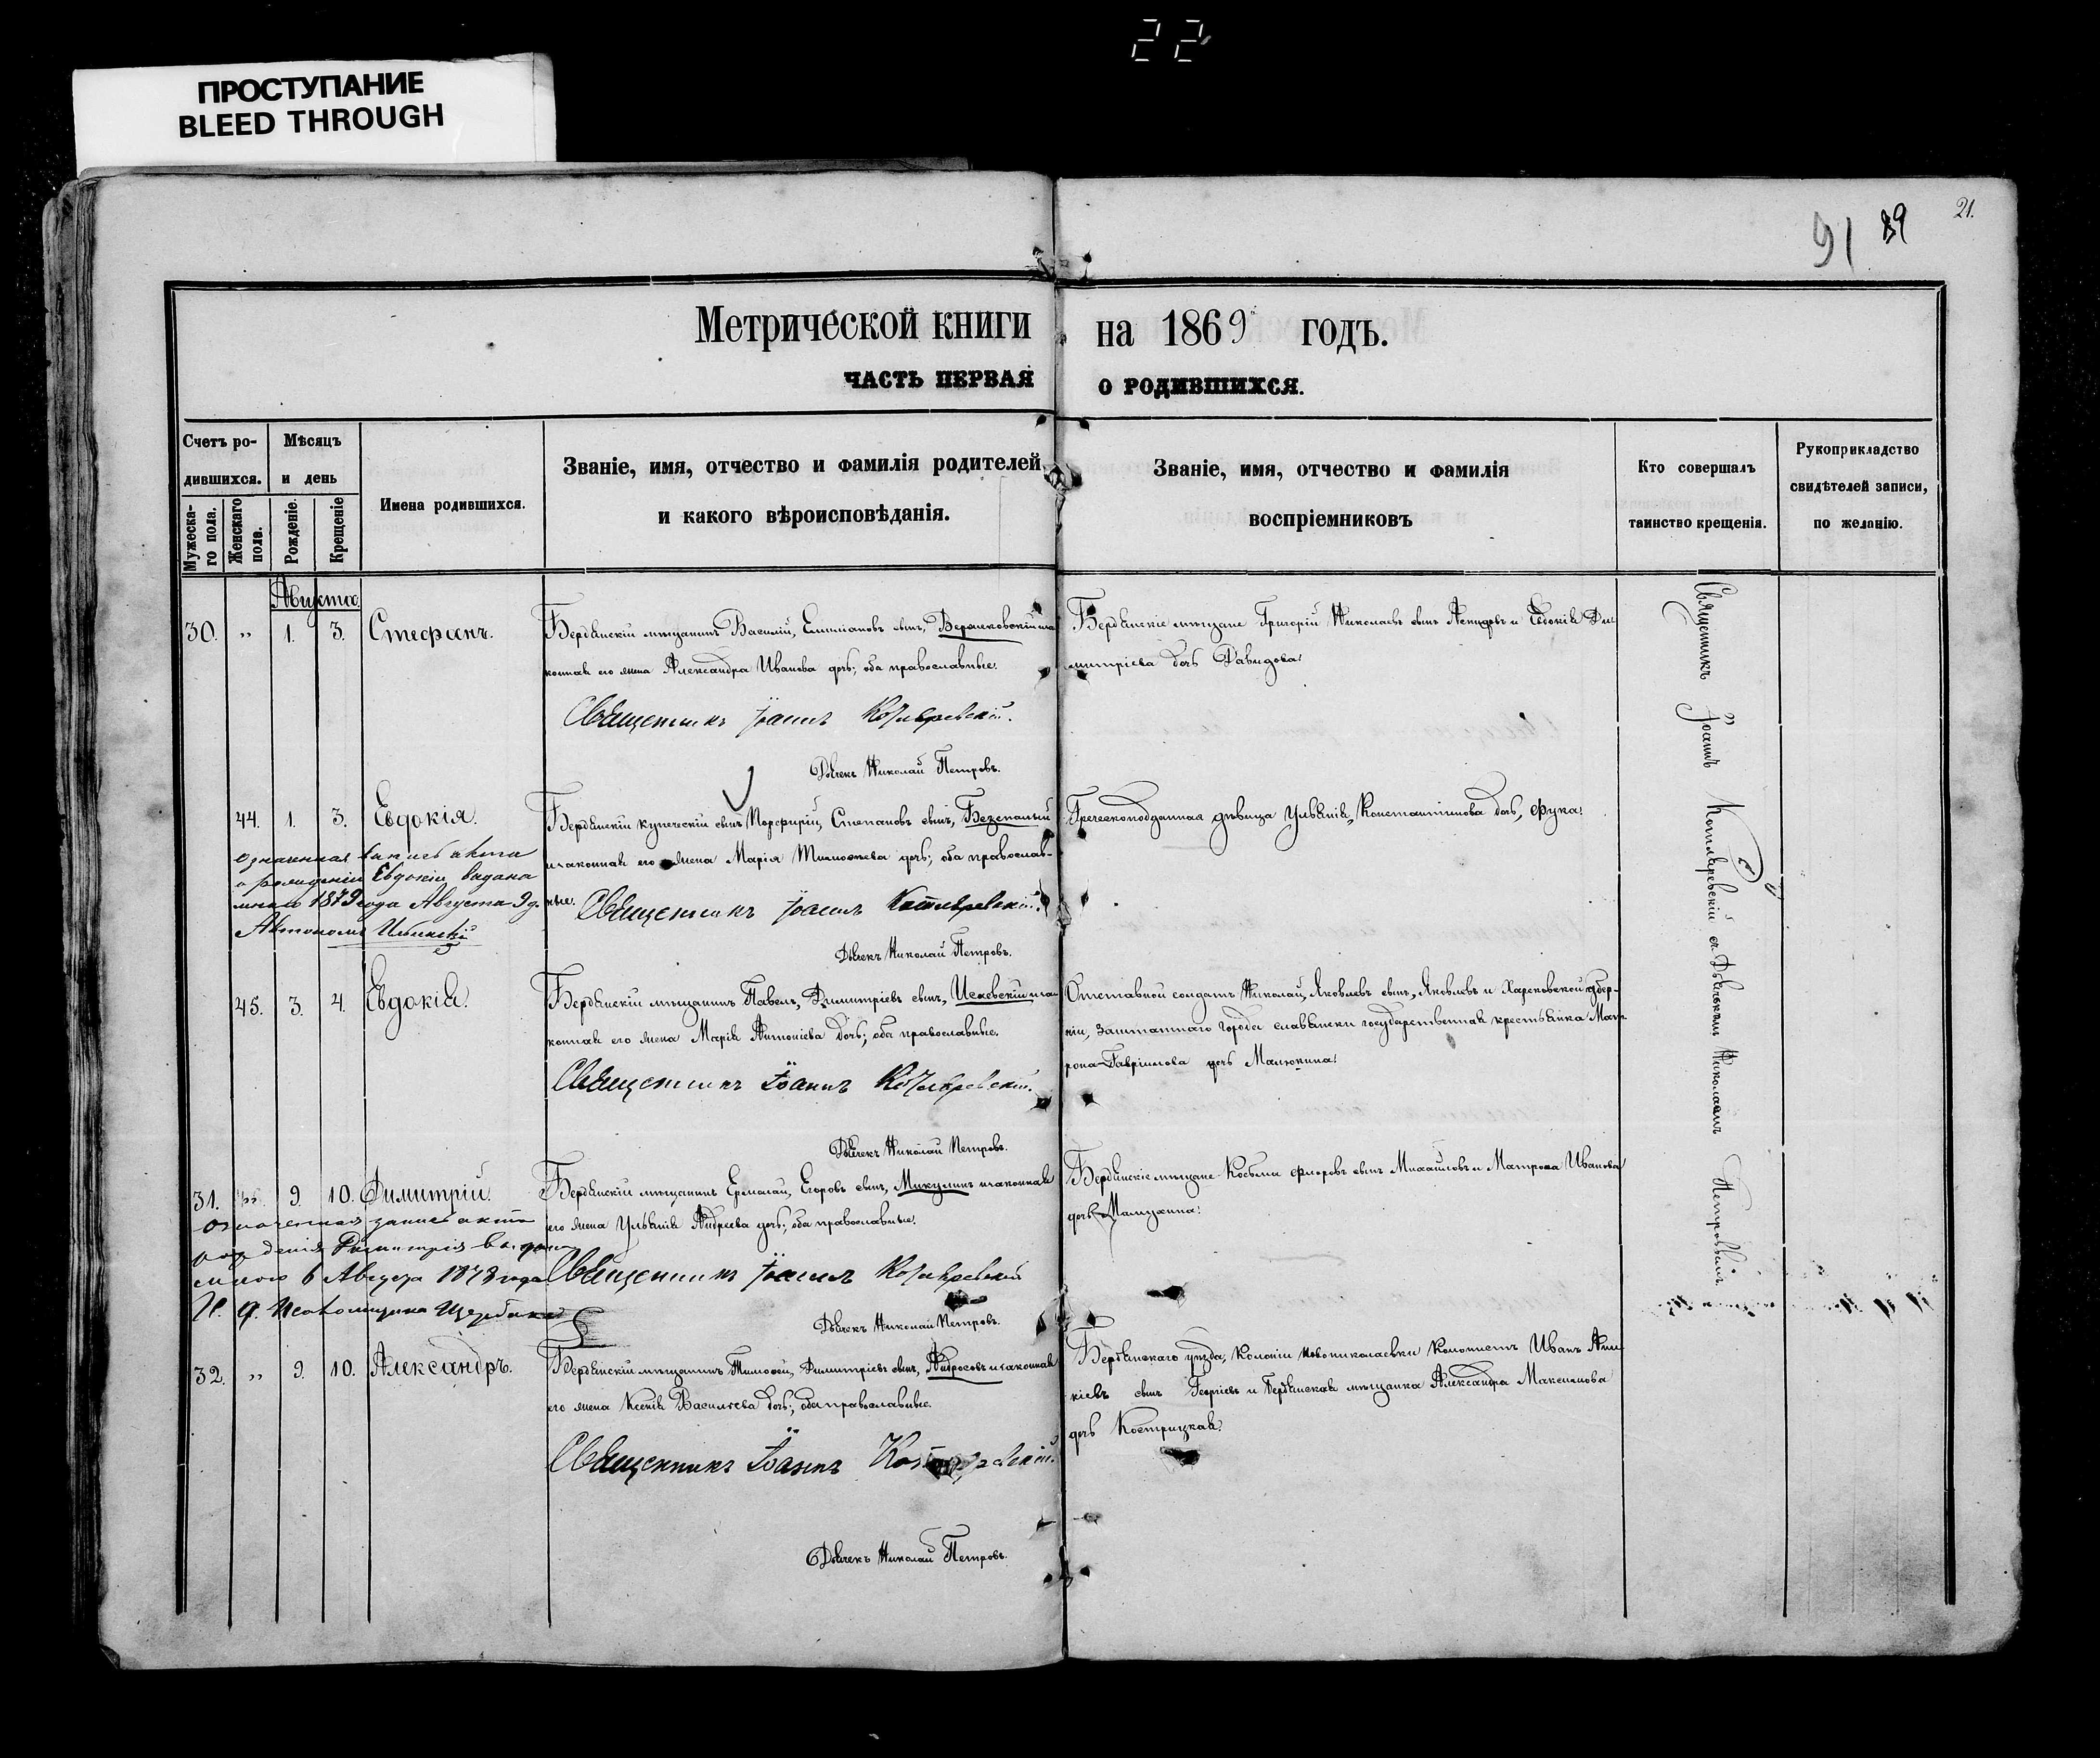 22
ПРОСТУПАНИЕ
BLEED THROUGH
91 89 21.
Метрической книги на 1869 годъ.
ЧАСТЬ ПЕРВАЯ О РОДИВШИХСЯ.
Счетъ ро-
дившихся.
Мужеска-
го пола.
Женскаго
пола.
Мѣсяцъ
и день
Рожденіе.
Крещеніе
Имена родившихся.
Званіе, имя, отчество и фамилія родителей
и какого вѣроисповѣданія.
Званіе, имя, отчество и фамилія
воспріемниковъ
Кто совершалъ
таинство крещенія.
Рукоприкладство
свидѣтелей записи,
по желанію.
Августа
30. „ 1. 3. Стефанъ.
Бердянскій мѣщанинъ Василій, сынъ,
конная его жена Александра Иванова дочь; оба православные.
Священникъ Іоаннъ Котляревскій.
Дьячекъ Николай Петровъ.
Бердянскіе мѣщане Григорій Николаевъ сынъ и Евдокія Ди-
митріева дочь Давидова.
44. 1. 3. Евдокія.
Бердянскій купеческій сынъ Порфирій, Степановъ сынъ, Безпалый
и законная его жена Марія Тимоѳеева дочь; оба православ-
ные. Священникъ Іоаннъ Котляревскій.
Дьячекъ Николай Петровъ.
Греческоподданная дѣвица Ульянія, Константинова дочь, Фука.
означенная запись акта
о рожденіи Евдокіи видана
мною 1879 года Августа 9 д.
Автономъ
45. 3. 4. Евдокія.
Бердянскій мѣщанинъ Павелъ, Димитріевъ сынъ,
конная его жена Марія Антоніева дочь; оба православные.
Священникъ Іоаннъ Котляревскій.
Дьячекъ Николай Петровъ.
Отставной солдатъ Николай, Яковлевъ сынъ, Яковлевъ и Харьковской губер-
ніи, заштатнаго города Славянска государственная крестьянка Мат-
рона Гавріилова дочь Манюкина.
31. „ 9. 10. Димитрій.
Бердянскій мѣщанинъ Ермолай, Егоровъ сынъ, Микулинъ и законная
его жена Ульянія Андреева дочь; оба православные.
Священникъ Іоаннъ Котляревскій
Дьячекъ Николай Петровъ.
Бердянскіе мѣщане Косьма Флоровъ сынъ Михайловъ и Матрона Иванова
дочь
означенная запись акта
рожденія Димитрія видана
мною 6 Августа 1878 года
32. „ 9. 10. Александръ.
Бердянскій мѣщанинъ Тимоѳей, Димитріевъ сынъ, Андросовъ и законная
его жена Ксенія Васильева дочь; оба православные.
Священникъ Іоаннъ Котляревскій.
Дьячекъ Николай Петровъ.
Бердянскаго уѣзда, колоніи Новониколаевки колонистъ Иванъ
сынъ Георгіевъ и Бердянская мѣщанка Александра Максимова
дочь Кострицкая.
Священникъ Іоаннъ Котляревскій съ Дьячкомъ Николаемъ Петровымъ